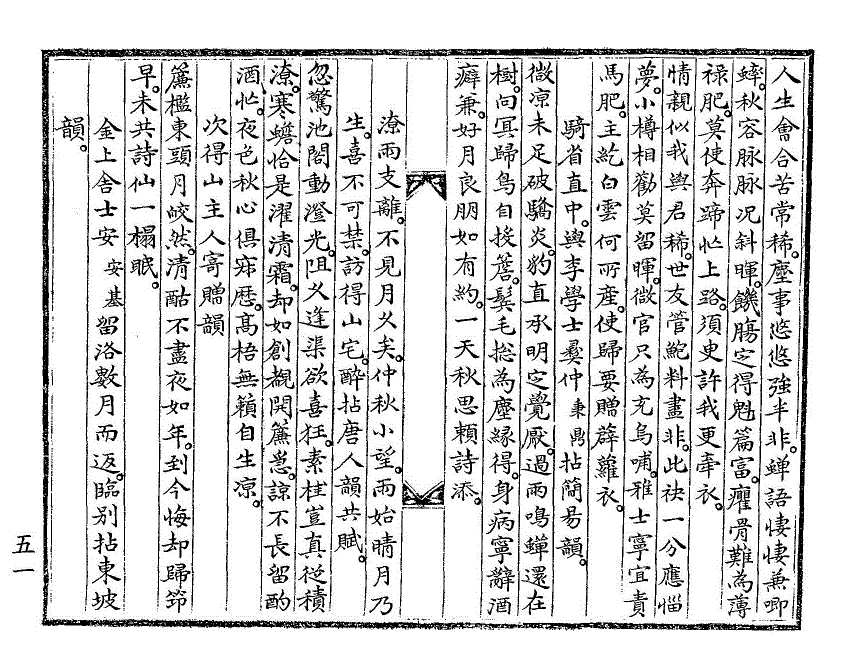 人生會合苦常稀。塵事悠悠強半非。蟬語悽悽兼唧
蟀。秋容脉脉况斜暉。饑膓定得魁篇富。癯骨難為薄
祿肥。莫使奔蹄忙上路。須臾許我更牽衣。
情親似我與君稀。世友管鮑料盡非。此袂一分應惱
夢。小樽相勸莫留暉。微官只為充烏哺。雅士寧宜責
馬肥。主紇白雲何所產。使歸要贈薜蘿衣。
騎省直中。與李學士彜仲 秉鼎 拈簡易韻。
微凉未足破驕炎。豹直承明定覺厭。過雨鳴蟬還在
樹。向冥歸鳥自投簷。鬓毛揔為塵緣得。身病寧辭酒
癖兼。好月良朋如有約。一天秋思頼詩添。
潦雨支離。不見月久矣。仲秋小望。雨始晴月乃
生。喜不可禁。訪得山宅。醉拈唐人韻共賦。
忽驚池閣動澄光。阻久逢渠欲喜狂。素桂豈真從積
潦。寒蟾恰是濯清霜。却如創覩開簾惫。諒不長留酌
酒忙。夜色秋心俱寂歷。髙梧無頼自生凉。
次得山主人寄贈韻
簾檻東頭月皎然。清酤不盡夜如年。到今悔却歸笻
早。未共詩仙一榻眠。
金上舍士安 安基 留洛數月而返。臨别拈東坡
韻。
五一